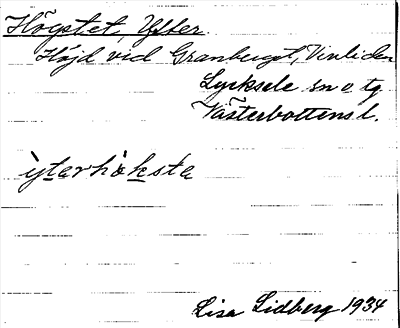 Högstet, Ytter.
Höjd vid Granberget, Vinliden
Lycksele sn o tg
Västerbottens l.
ỳtərhὰksta
Lisa Lidberg 1934